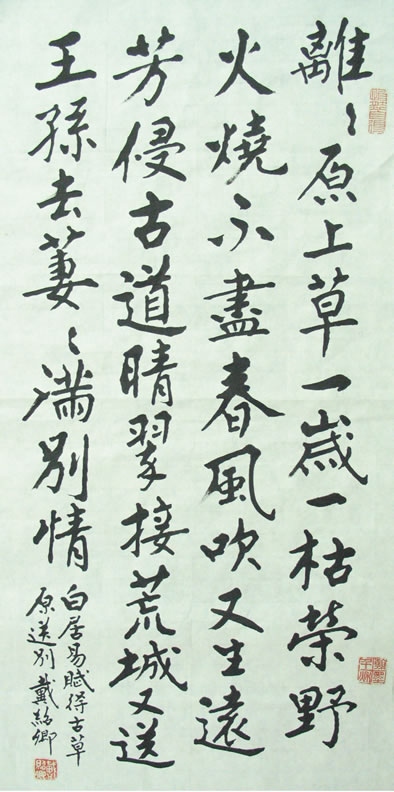 離〻原上草一歲一枯榮野
火燒不盡春風吹又生遠
芳侵古道晴翠接荒城又送
王孫去萋〻滿別情
白居易賦得古草
原送別 戴紹卿